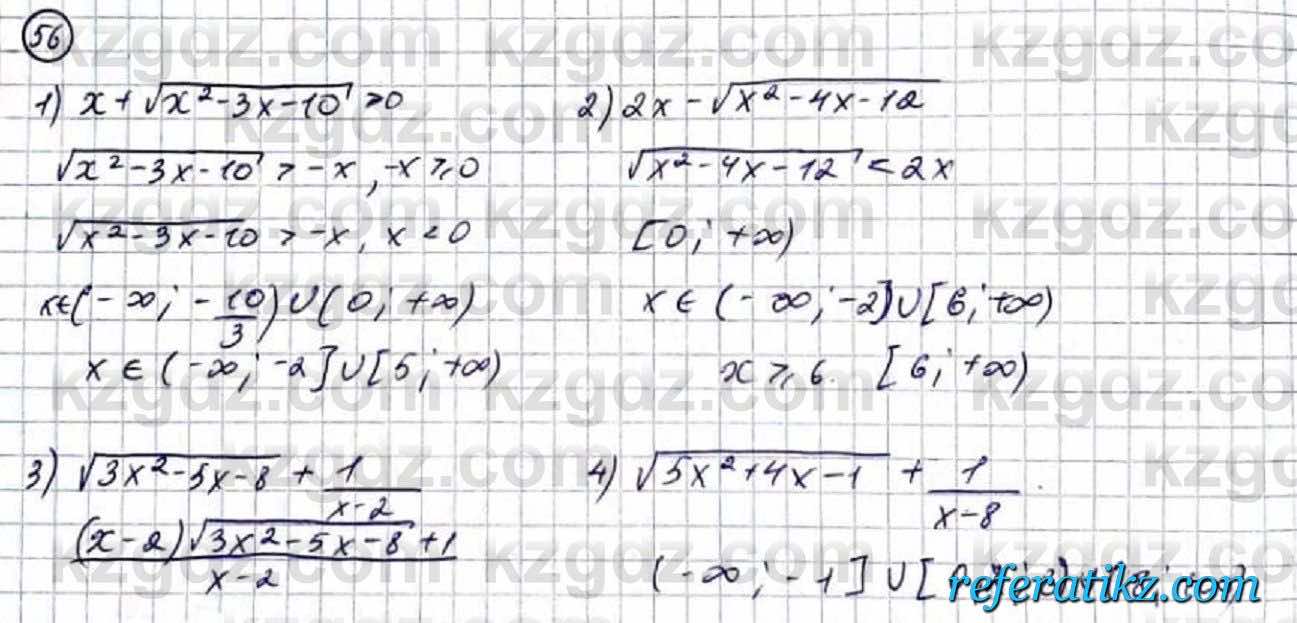 56
1) x + √(x² - 3x - 10) > 0
√(x² - 3x - 10) > -x, -x ≥ 0
√(x² - 3x - 10) > -x, x < 0
x ∈ (-∞; -10/3) ∪ (0; +∞)
x ∈ (-∞; -2] ∪ [5; +∞)
2) 2x - √(x² - 4x - 12)
√(x² - 4x - 12) < 2x
[0; +∞)
x ∈ (-∞; -2] ∪ [6; +∞)
x ≥ 6. [6; +∞)
3) √(3x² - 5x - 8) + 1/(x - 2)
((x - 2)√(3x² - 5x - 8) + 1)/(x - 2)
4) √(5x² + 4x - 1) + 1/(x - 8)
(-∞; -1] ∪ [
kzgdz.com
referatikz.com